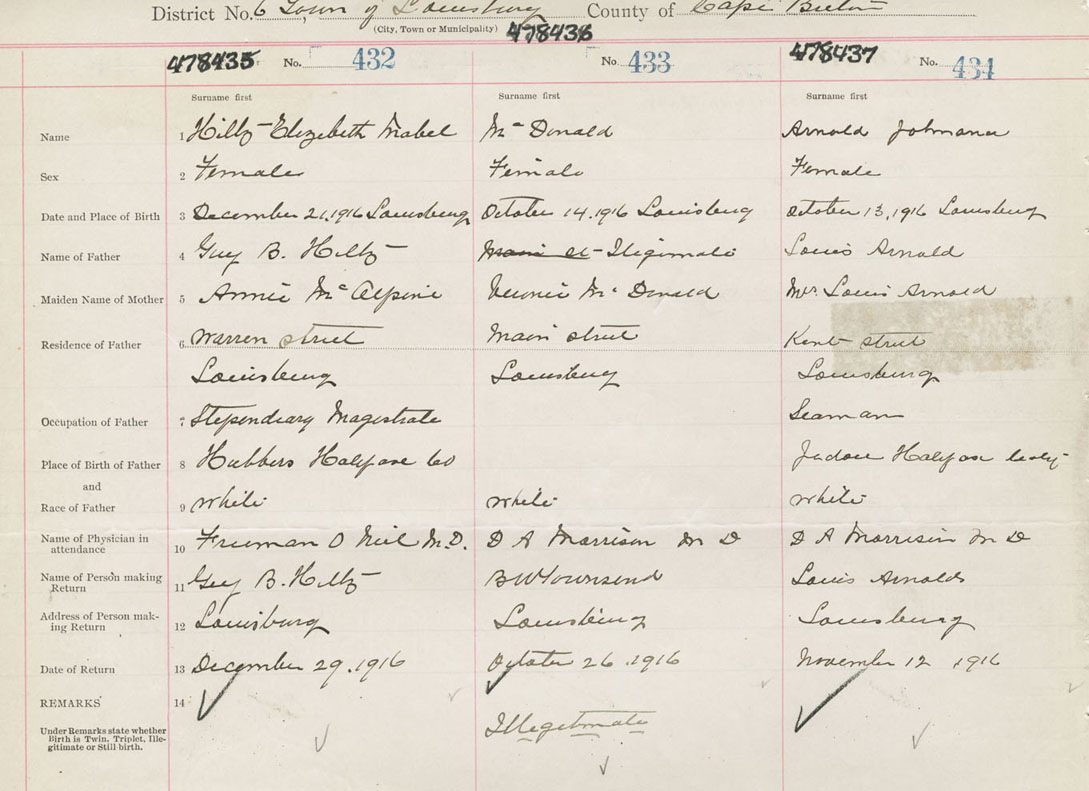 District No. 6 Town of Louisburg County of Cape Breton
(City, Town or Municipality)
478435 No. 432 478436 No. 433 478437 No. 434
Surname first Surname first Surname first
Name 1 Hiltz Elizebeth Mabel Mc Donald Arnold Johmana
Sex 2 Female Female Female
Date and Place of Birth 3 December 21, 1916 Louisburg October 14, 1916 Louisburg October 13, 1916 Louisburg
Name of Father 4 Guy B. Hiltz Illigimate Louis Arnold
Maiden Name of Mother 5 Annie Mc Alpine Mc Donald Mrs Louis Arnold
Residence of Father 6 Warren street Main street Kent street
Louisburg Louisburg Louisburg
Occupation of Father 7 Stependiary Magestrate Seaman
Place of Birth of Father 8 Hubbers Halyfax Co Halyfax
and
Race of Father 9 White White White
Name of Physician in
attendance 10 Freeman O Neil M.D. D A Morrison M D D A Morrison M D
Name of Person making
Return 11 Guy B. Hiltz B W Townsend Louis Arnold
Address of Person mak-
ing Return 12 Louisburg Louisburg Louisburg
Date of Return 13 December 29, 1916 October 26, 1916 November 12 1916
REMARKS 14
Under Remarks state whether
Birth is Twin, Triplet, Ille-
gitimate or Still birth.
Illegetmate